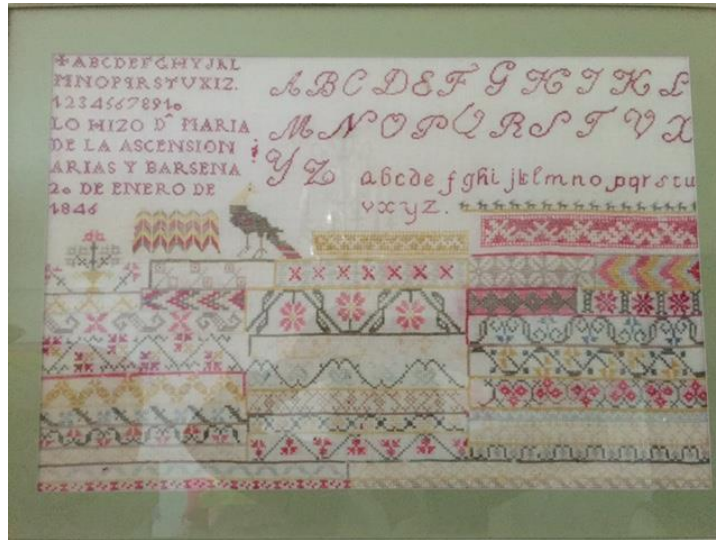 *ABCDEFGHYJKL
MNOPQRSTVXIZ.
12345678910
LO HIZO Dª MARIA
DE LA ASCENSION
ARIAS Y BARSENA
20 DE ENERO DE
1846
ABCDEFGHIKL
MNOPQRSTVX
YZ
abcdefghijklmnopqrstu
vxyz.